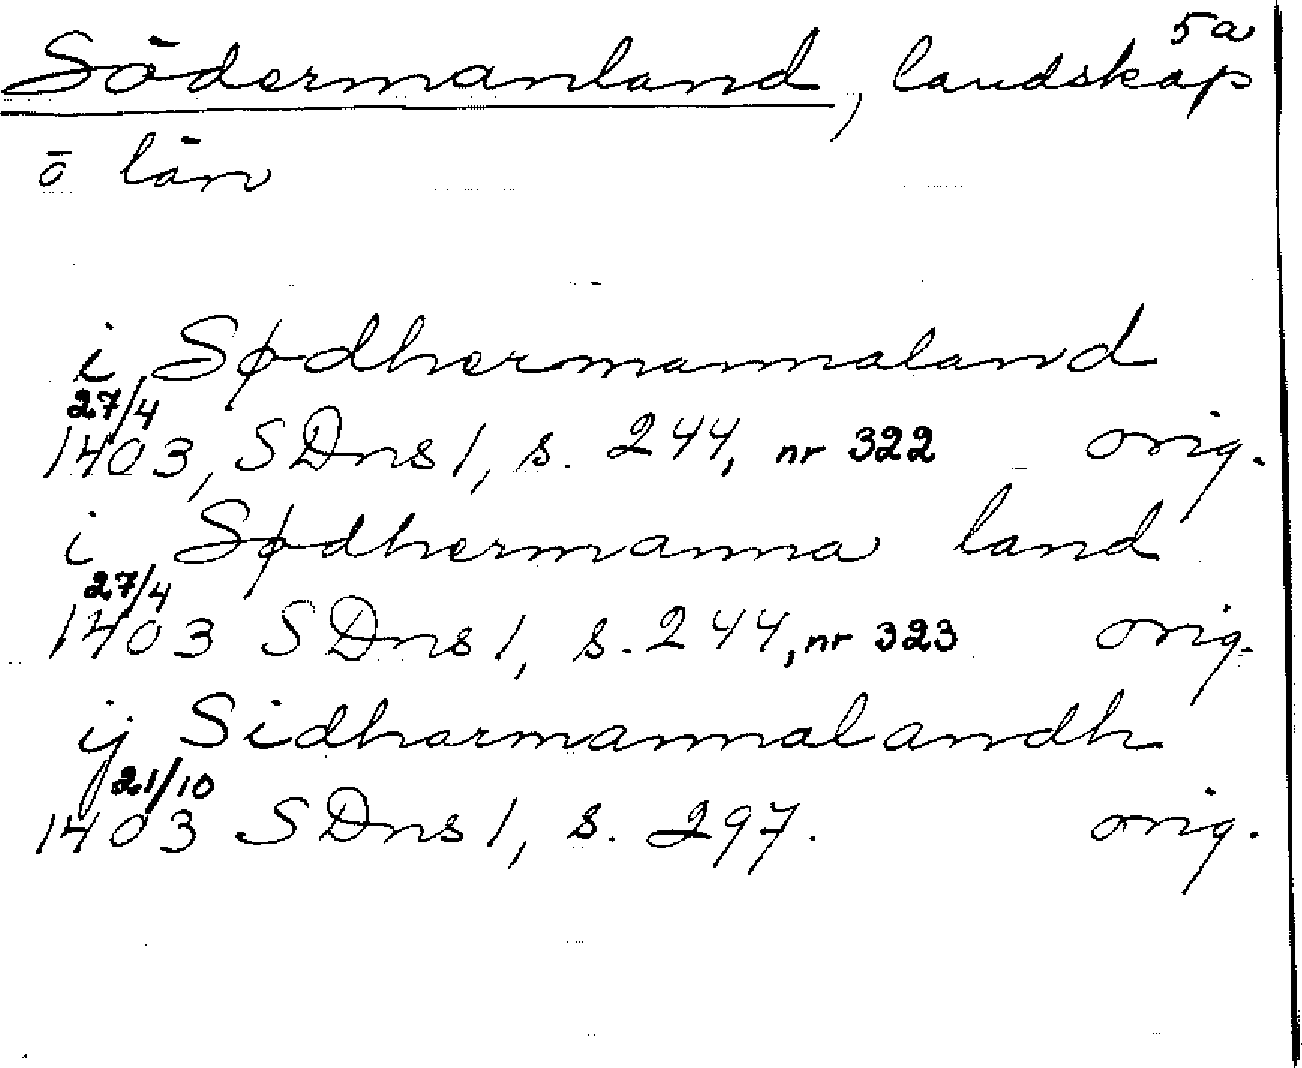 5a
Södermanland, landskap
ö län
i Sødhermannaland
27/4
1403, SDns 1, s. 244, nr 322 orig.
i Sødhermanna land
27/4
1403 SDns 1, s. 244, nr 323 orig.
ij Sidharmannalandh
21/10
1403 SDns 1, s. 297. orig.